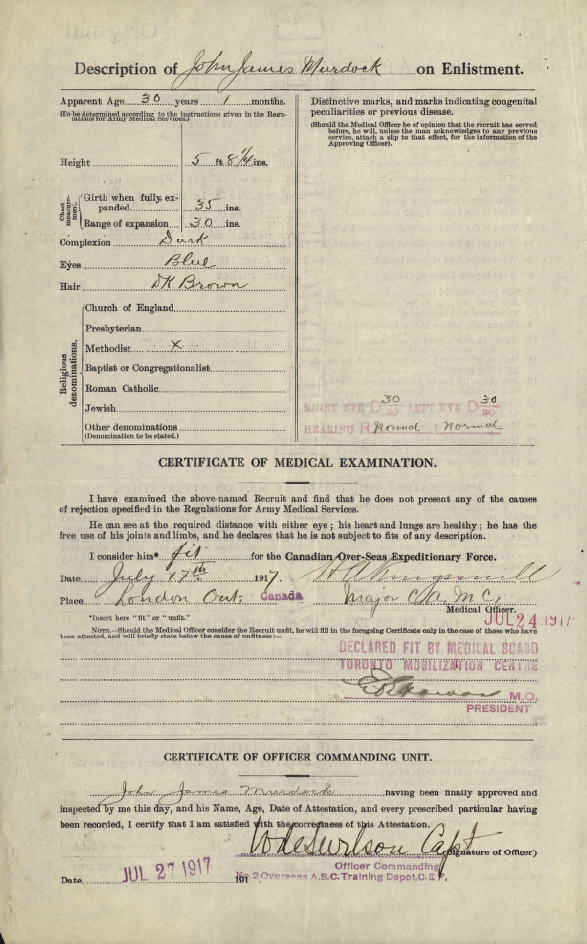 Description of John James Murdock on Enlistment.
Apparent Age 30 years 1 months.
(To be determined according to the instructions given in the Regulations for Army Medical Services.)
Height 5 ft. 8 1/4 ins.
Chest measurement.
Girth when fully expanded 35 ins.
Range of expansion 30 ins.
Complexion Dark
Eyes Blue
Hair DK Brown
Religious denominations.
Church of England
Presbyterian
Methodist x
Baptist or Congregationalist
Roman Catholic
Jewish
Other denominations
(Denomination to be stated.)
Distinctive marks, and marks indicating congenital
peculiarities or previous disease.
(Should the Medical Officer be of opinion that the recruit has served
before, he will, unless the man acknowledges to any previous
service, attach a slip to that effect, for the information of the
Approving Officer).
RIGHT EYE D 30/20 LEFT EYE D 30/20
HEARING R Normal L Normal
CERTIFICATE OF MEDICAL EXAMINATION.
I have examined the above-named Recruit and find that he does not present any of the causes
of rejection specified in the Regulations for Army Medical Services.
He can see at the required distance with either eye; his heart and lungs are healthy; he has the
free use of his joints and limbs, and he declares that he is not subject to fits of any description.
I consider him* fit for the Canadian Over-Seas Expeditionary Force.
Date July 17th 1917.
Place London Ont. Canada Major C.A.M.C.
Medical Officer.
JUL 24 1917
*Insert here "fit" or "unfit."
NOTE.—Should the Medical Officer consider the Recruit unfit, he will fill in the foregoing Certificate only in the case of those who have
been attested, and will briefly state below the cause of unfitness:—
DECLARED FIT BY MEDICAL BOARD
TORONTO MOBILIZATION CENTRE
M.O.
PRESIDENT
CERTIFICATE OF OFFICER COMMANDING UNIT.
John James Murdock having been finally approved and
inspected by me this day, and his Name, Age, Date of Attestation, and every prescribed particular having
been recorded, I certify that I am satisfied with the correctness of this Attestation.
Capt (Signature of Officer)
Officer Commanding
No 2 Overseas A.S.C. Training Depot, C.E.F.
Date JUL 27 1917 191